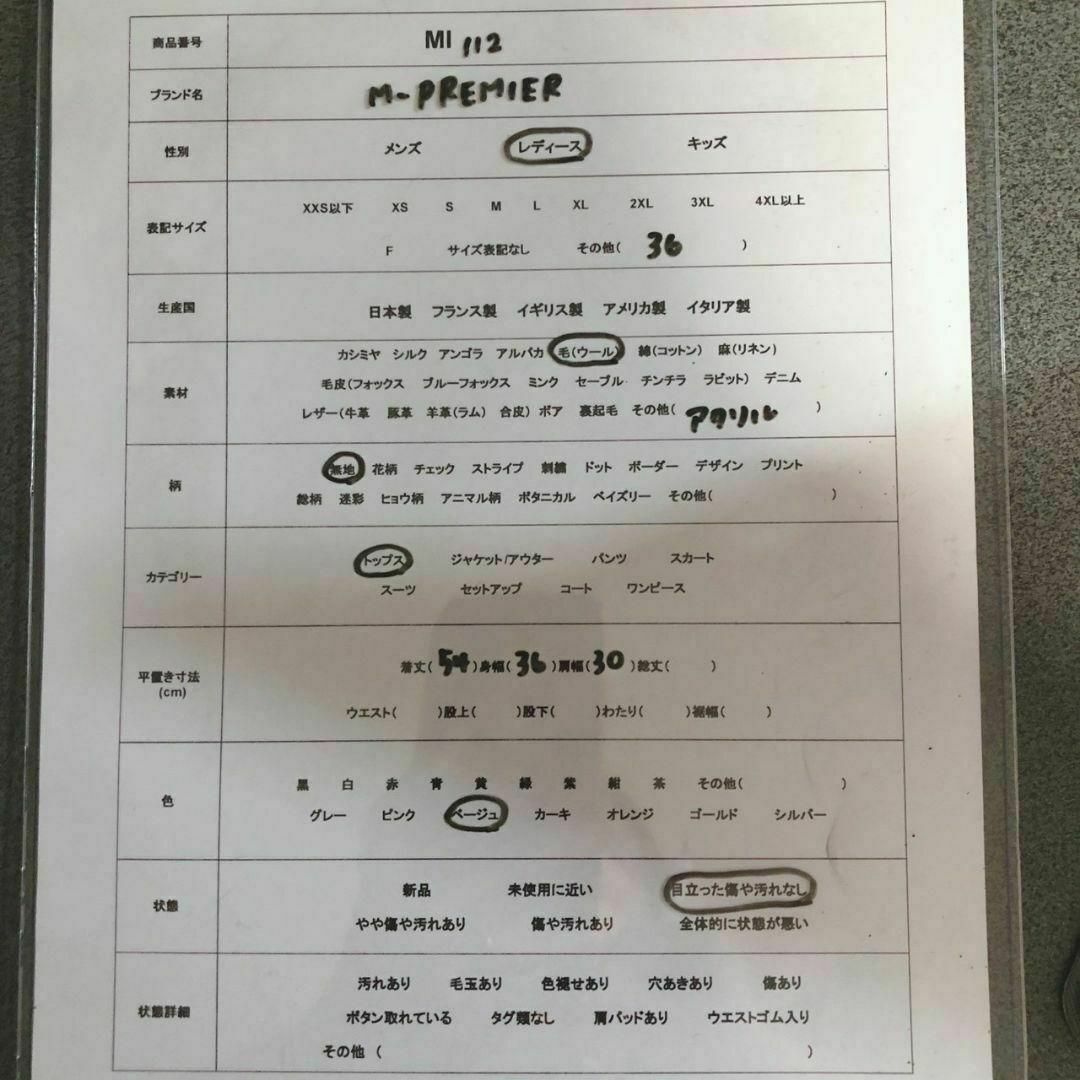 商品番号 MI 112
ブランド名 M-PREMIER
性別 メンズ レディース キッズ
表記サイズ
XXS以下 XS S M L XL 2XL 3XL 4XL以上
F サイズ表記なし その他( 36 )
生産国 日本製 フランス製 イギリス製 アメリカ製 イタリア製
素材
カシミヤ シルク アンゴラ アルパカ 毛(ウール) 綿(コットン) 麻(リネン)
毛皮(フォックス ブルーフォックス ミンク セーブル チンチラ ラビット) デニム
レザー(牛革 豚革 羊革(ラム) 合皮) ボア 裏起毛 その他( アクリル )
柄
無地 花柄 チェック ストライプ 刺繍 ドット ボーダー デザイン プリント
総柄 迷彩 ヒョウ柄 アニマル柄 ボタニカル ペイズリー その他( )
カテゴリー
トップス ジャケット/アウター パンツ スカート
スーツ セットアップ コート ワンピース
平置き寸法
(cm)
着丈( 54 )身幅( 36 )肩幅( 30 )総丈( )
ウエスト( )股上( )股下( )わたり( )裾幅( )
色
黒 白 赤 青 黄 緑 紫 紺 茶 その他( )
グレー ピンク ベージュ カーキ オレンジ ゴールド シルバー
状態
新品 未使用に近い 目立った傷や汚れなし
やや傷や汚れあり 傷や汚れあり 全体的に状態が悪い
状態詳細
汚れあり 毛玉あり 色褪せあり 穴あきあり 傷あり
ボタン取れている タグ類なし 肩パッドあり ウエストゴム入り
その他 ( )